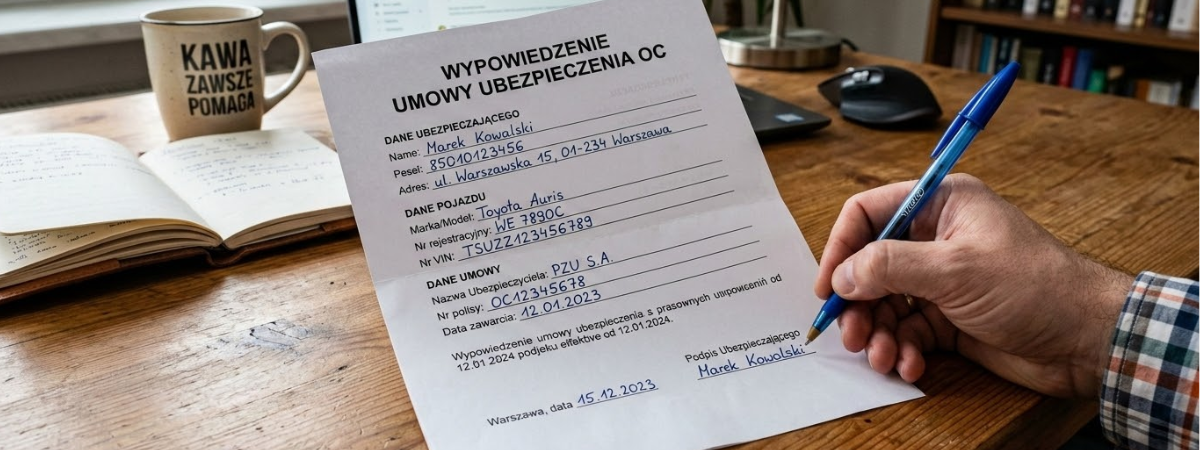 KAWA
ZAWSZE
POMAGA
WYPOWIEDZENIE
UMOWY UBEZPIECZENIA OC
DANE UBEZPIECZAJĄCEGO
Name: Marek Kowalski
Pesel: 85010123456
Adres: ul. Warszawska 15, 01-234 Warszawa
DANE POJAZDU
Marka/Model: Toyota Auris
Nr rejestracyjny: WE 7890C
Nr VIN: TSUZZ123456789
DANE UMOWY
Nazwa Ubezpieczyciela: PZU S.A.
Nr polisy: OC12345678
Data zawarcia: 12.01.2023
Wypowiedzenie umowy ubezpieczenia s prasownych od
12.01 2024 podjeku effektive od 12.01.2024.
Podpis Ubezpieczającego
Marek Kowolski
Warszawa, data 15.12.2023